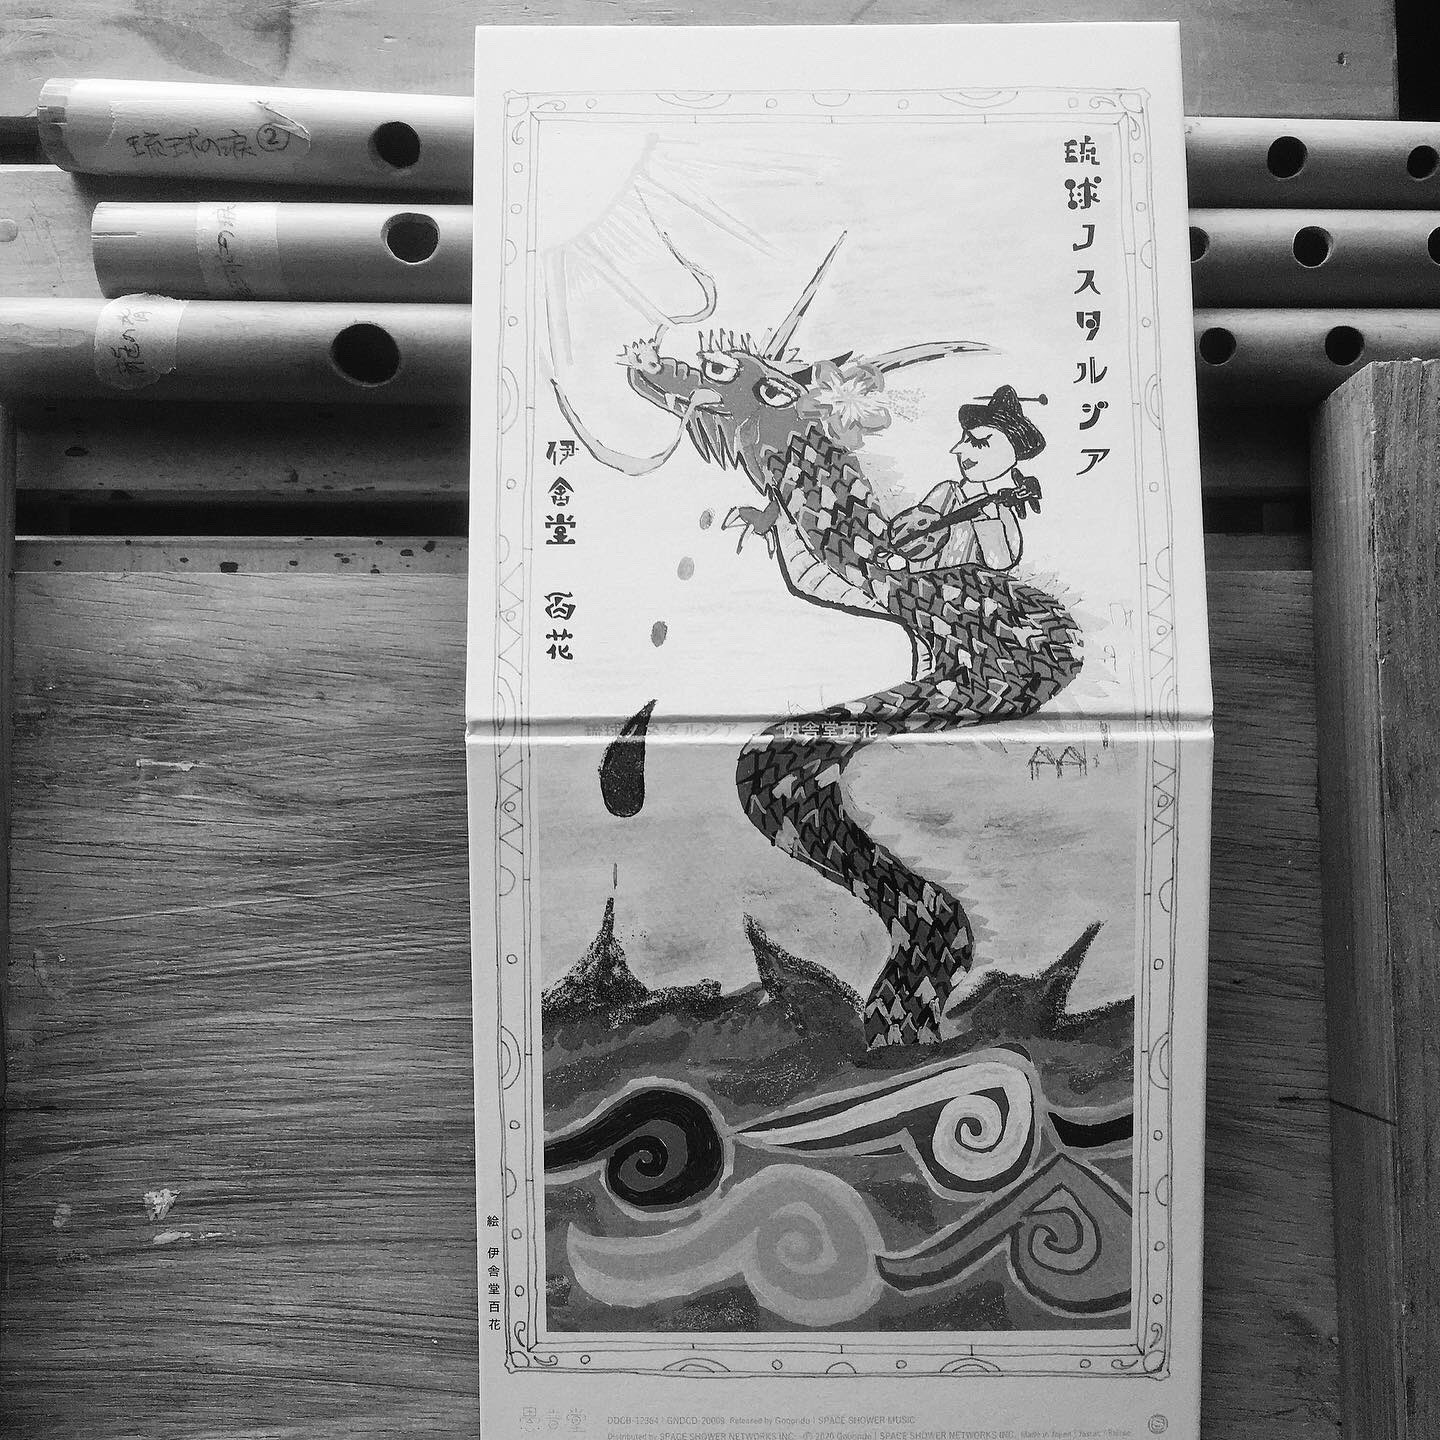 琉球ノスタルジア
伊舎堂 百花
琉球の涙②
琉球ノスタルジア 伊舎堂百花
絵 伊舎堂百花
DDCB-12364 | GNDCD-20009 Released by Gooondo | SPACE SHOWER MUSIC
Distributed by SPACE SHOWER NETWORKS INC. Ⓟ© 2020 Goondo | SPACE SHOWER NETWORKS INC. Made in Japan